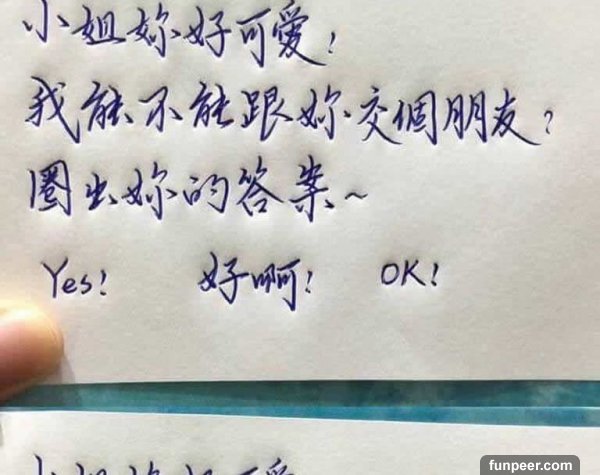 小姐妳好可愛,
我能不能跟妳交個朋友?
圈出妳的答案~
Yes! 好啊! OK!
小姐妳好可愛
funpeer.com